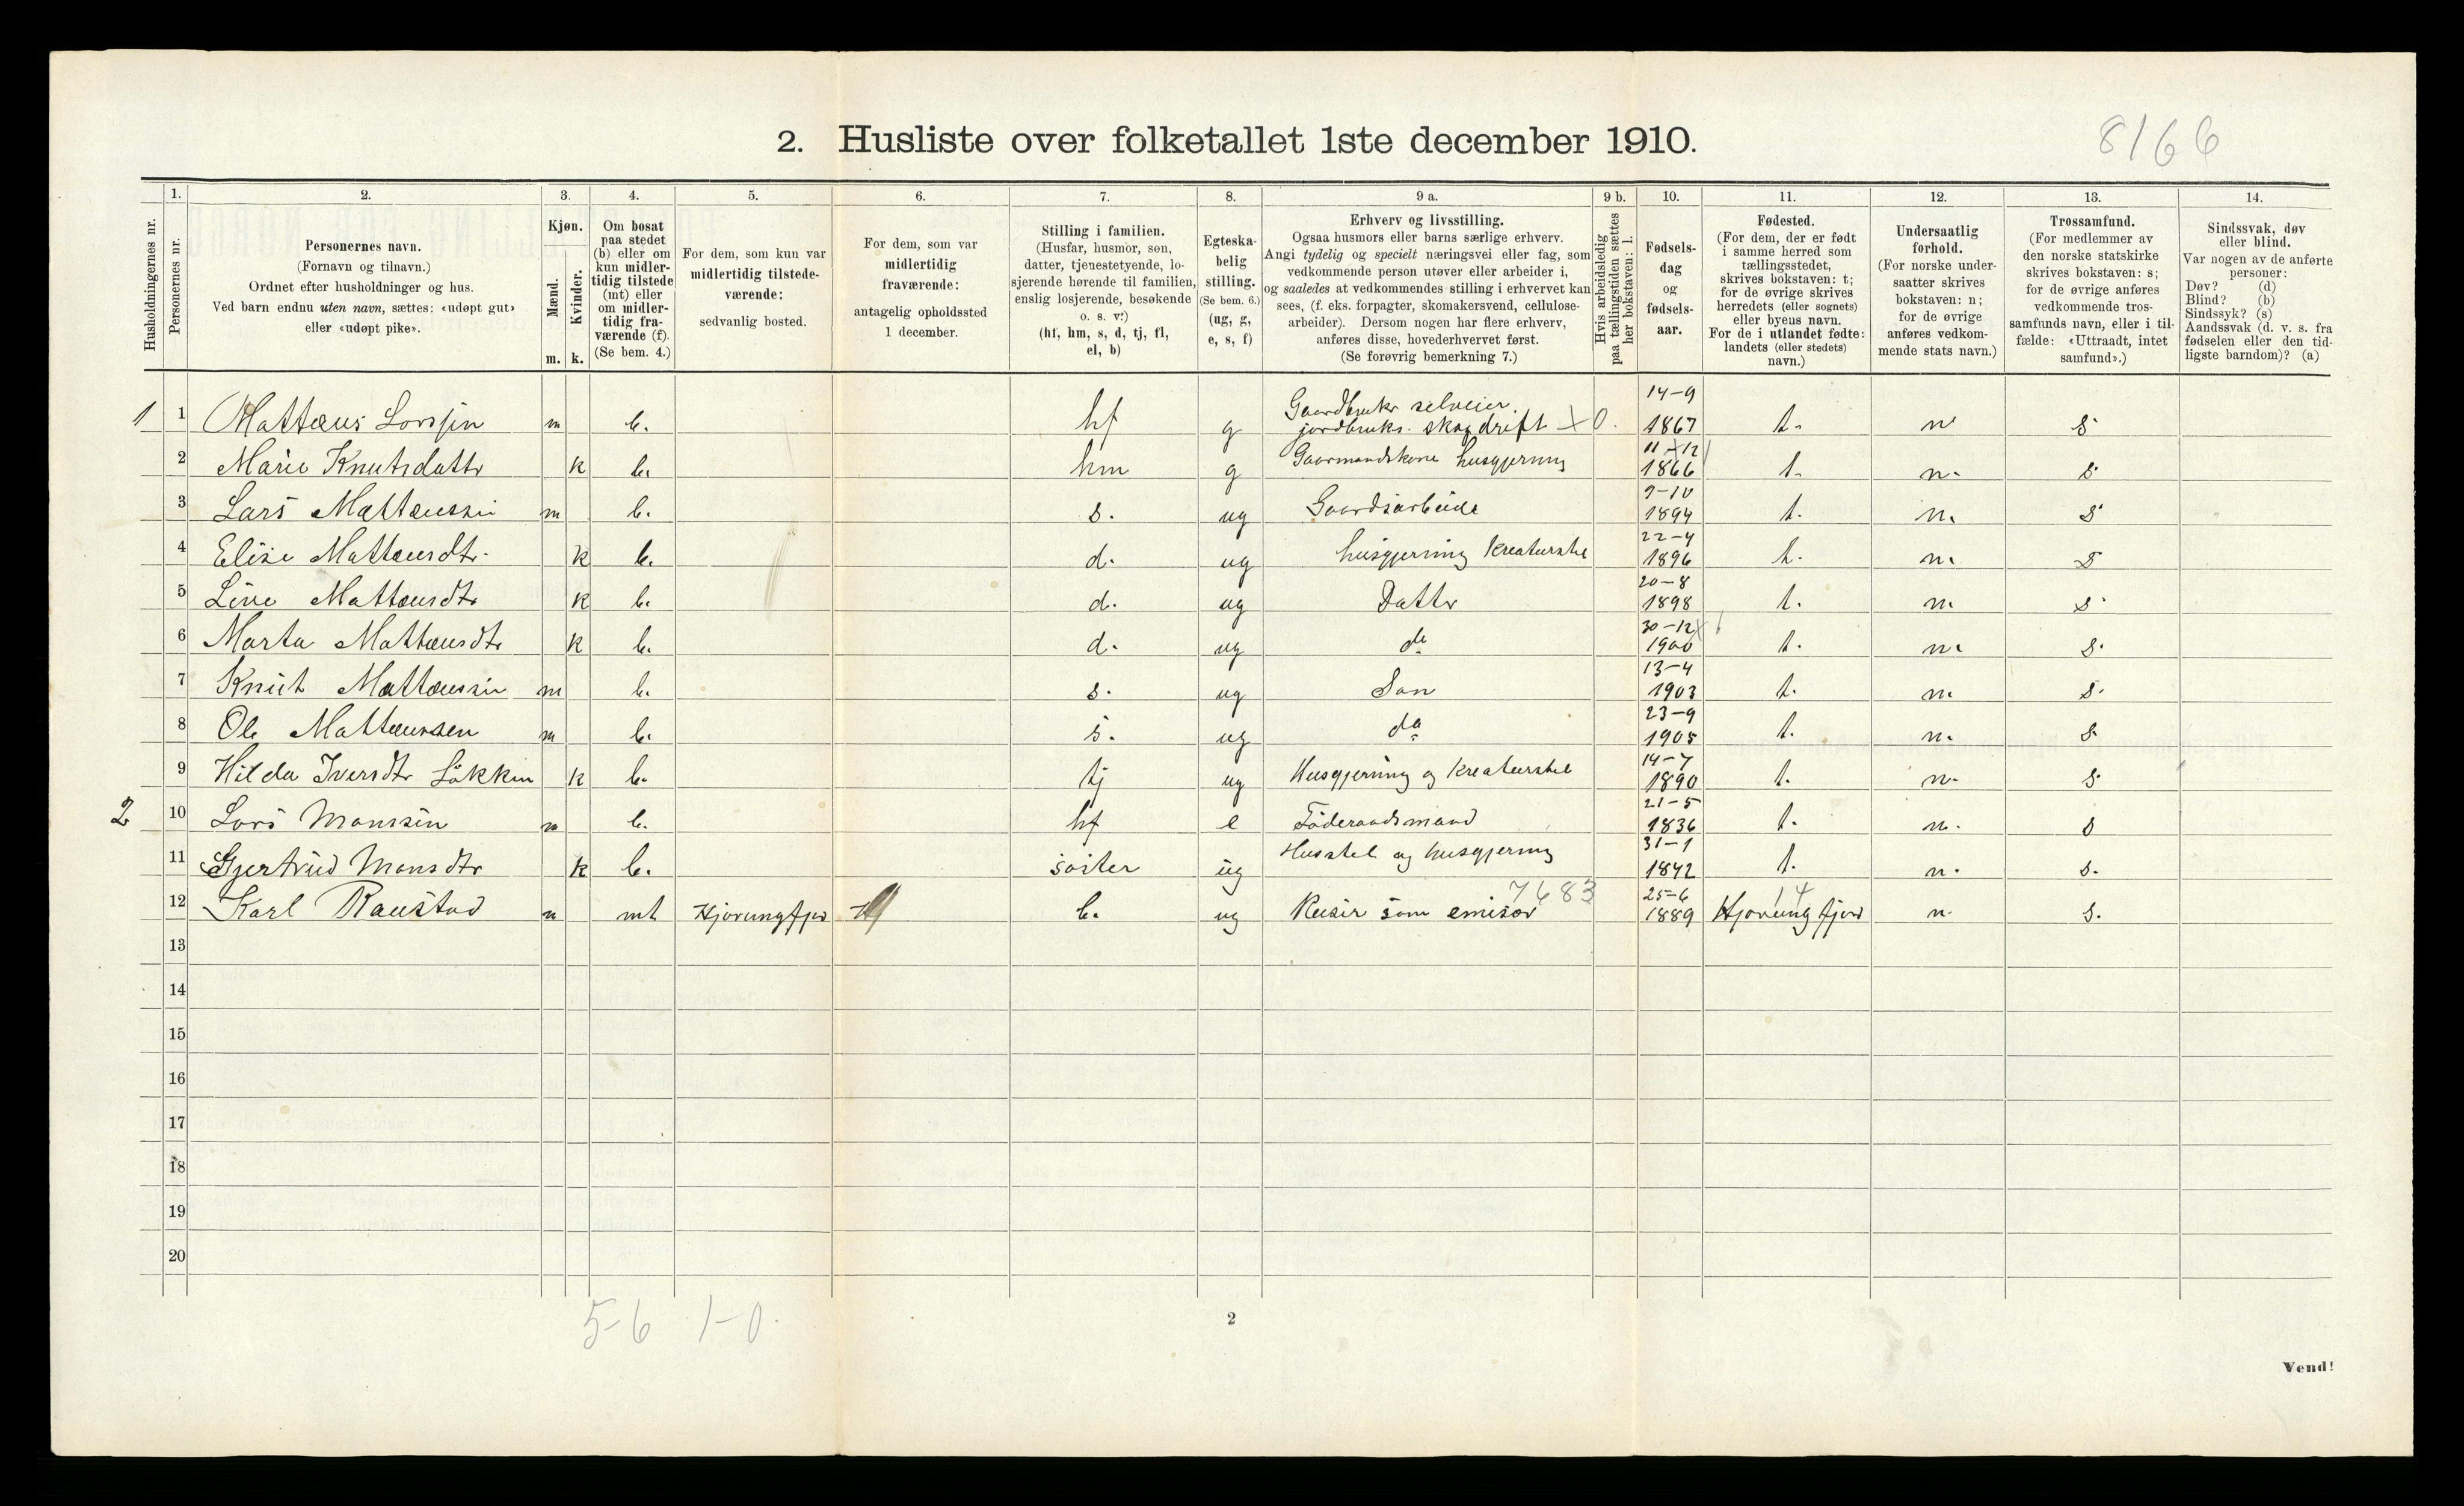 2. Husliste over folketallet 1ste december 1910.
8166
1. 2. 3. 4. 5. 6. 7. 8. 9 a. 9 b. 10. 11. 12. 13. 14.
Husholdningernes nr.
Personernes nr.
Personernes navn.
(Fornavn og tilnavn.)
Ordnet efter husholdninger og hus.
Ved barn endnu uten navn, sættes: «udøpt gut»
eller «udøpt pike».
Kjøn.
Mænd.
Kvinder.
m. k.
Om bosat
paa stedet
(b) eller om
kun midler-
tidig tilstede
(mt) eller
om midler-
tidig fra-
værende (f).
(Se bem. 4.)
For dem, som kun var
midlertidig tilstede-
værende:
sedvanlig bosted.
For dem, som var
midlertidig
fraværende:
antagelig opholdssted
1 december.
Stilling i familien.
(Husfar, husmor, søn,
datter, tjenestetyende, lo-
sjerende hørende til familien,
enslig losjerende, besøkende
o. s. v.)
(hf, hm, s, d, tj, fl,
el, b)
Egteska-
belig
stilling.
(Se bem. 6.)
(ug, g,
e, s, f)
Erhverv og livsstilling.
Ogsaa husmors eller barns særlige erhverv.
Angi tydelig og specielt næringsvei eller fag, som
vedkommende person utøver eller arbeider i,
og saaledes at vedkommendes stilling i erhvervet kan
sees, (f. eks. forpagter, skomakersvend, cellulose-
arbeider). Dersom nogen har flere erhverv,
anføres disse, hovederhvervet først.
(Se forøvrig bemerkning 7.)
Hvis arbeidsledig
paa tællingstiden sættes
her bokstaven: l.
Fødsels-
dag
og
fødsels-
aar.
Fødested.
(For dem, der er født
i samme herred som
tællingsstedet,
skrives bokstaven: t;
for de øvrige skrives
herredets (eller sognets)
eller byeus navn.
For de i utlandet fødte:
landets (eller stedets)
navn.)
Undersaatlig
forhold.
(For norske under-
saatter skrives
bokstaven: n;
for de øvrige
anføres vedkom-
mende stats navn.)
Trossamfund.
(For medlemmer av
den norske statskirke
skrives bokstaven: s;
for de øvrige anføres
vedkommende tros-
samfunds navn, eller i til-
fælde: «Uttraadt, intet
samfund».)
Sindssvak, døv
eller blind.
Var nogen av de anførte
personer:
Døv? (d)
Blind? (b)
Sindssyk? (s)
Aandssvak (d. v. s. fra
fødselen eller den tid-
ligste barndom)? (a)
1 1 Mattæus Larssen m b. hf g Gaardbruker selveier. jordbruks. skogdrift X 0. 14-9 1867 t. n s
2 Marie Knutsdattr k b. hm g Gaarmandskone husgjerning 11-12 1866 t. n. s
3 Lars Mattæussen m b. s. ug Gaardsarbeide 9-10 1894 t. n. s
4 Elise Mattæusdtr. k b. d. ug husgjerning kreaturstel 22-4 1896 t. n. s
5 Line Mattæusdtr k b. d. ug Dattr 20-8 1898 t. n. s
6 Marta Mattæusdtr k b. d. ug do 30-12 1900 t. n. s.
7 Knut Mattæussen m b. s. ug Søn 13-4 1903 t. n. s.
8 Ole Mattæussen m b. s. ug do 23-9 1905 t. n. s
9 Hilda Iversdtr Løkken k b. tj ug Husgjerning og kreaturstel 14-7 1890 t. n. s
2 10 Lars Monssen m b. hf e Föderaadsmand 21-5 1836 t. n. s
11 Gjertrud Monsdtr k b. søster ug Husstel og husgjerning 31-1 1842 t. n. s.
12 Karl Raustad m mt Hjørungfjor b. ug Reiser som emisør 7683 25-6 1889 Hjørungfjor 14 n s.
13
14
15
16
17
18
19
20
5-6 1-0.
2
Vend!